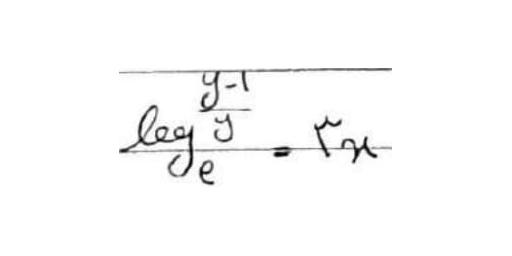 log_e^{\frac{y-1}{y}} = ۲x